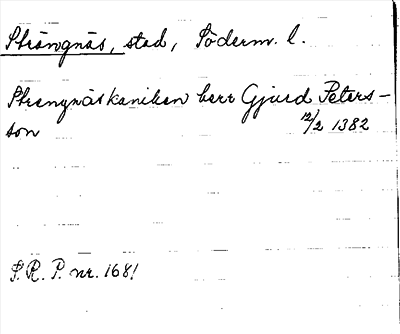 Strängnäs, stad, Söderm. l.
Strengnäskaniken herr Gjurd Peters-
son 12/2 1382
S. R. P. nr. 1681